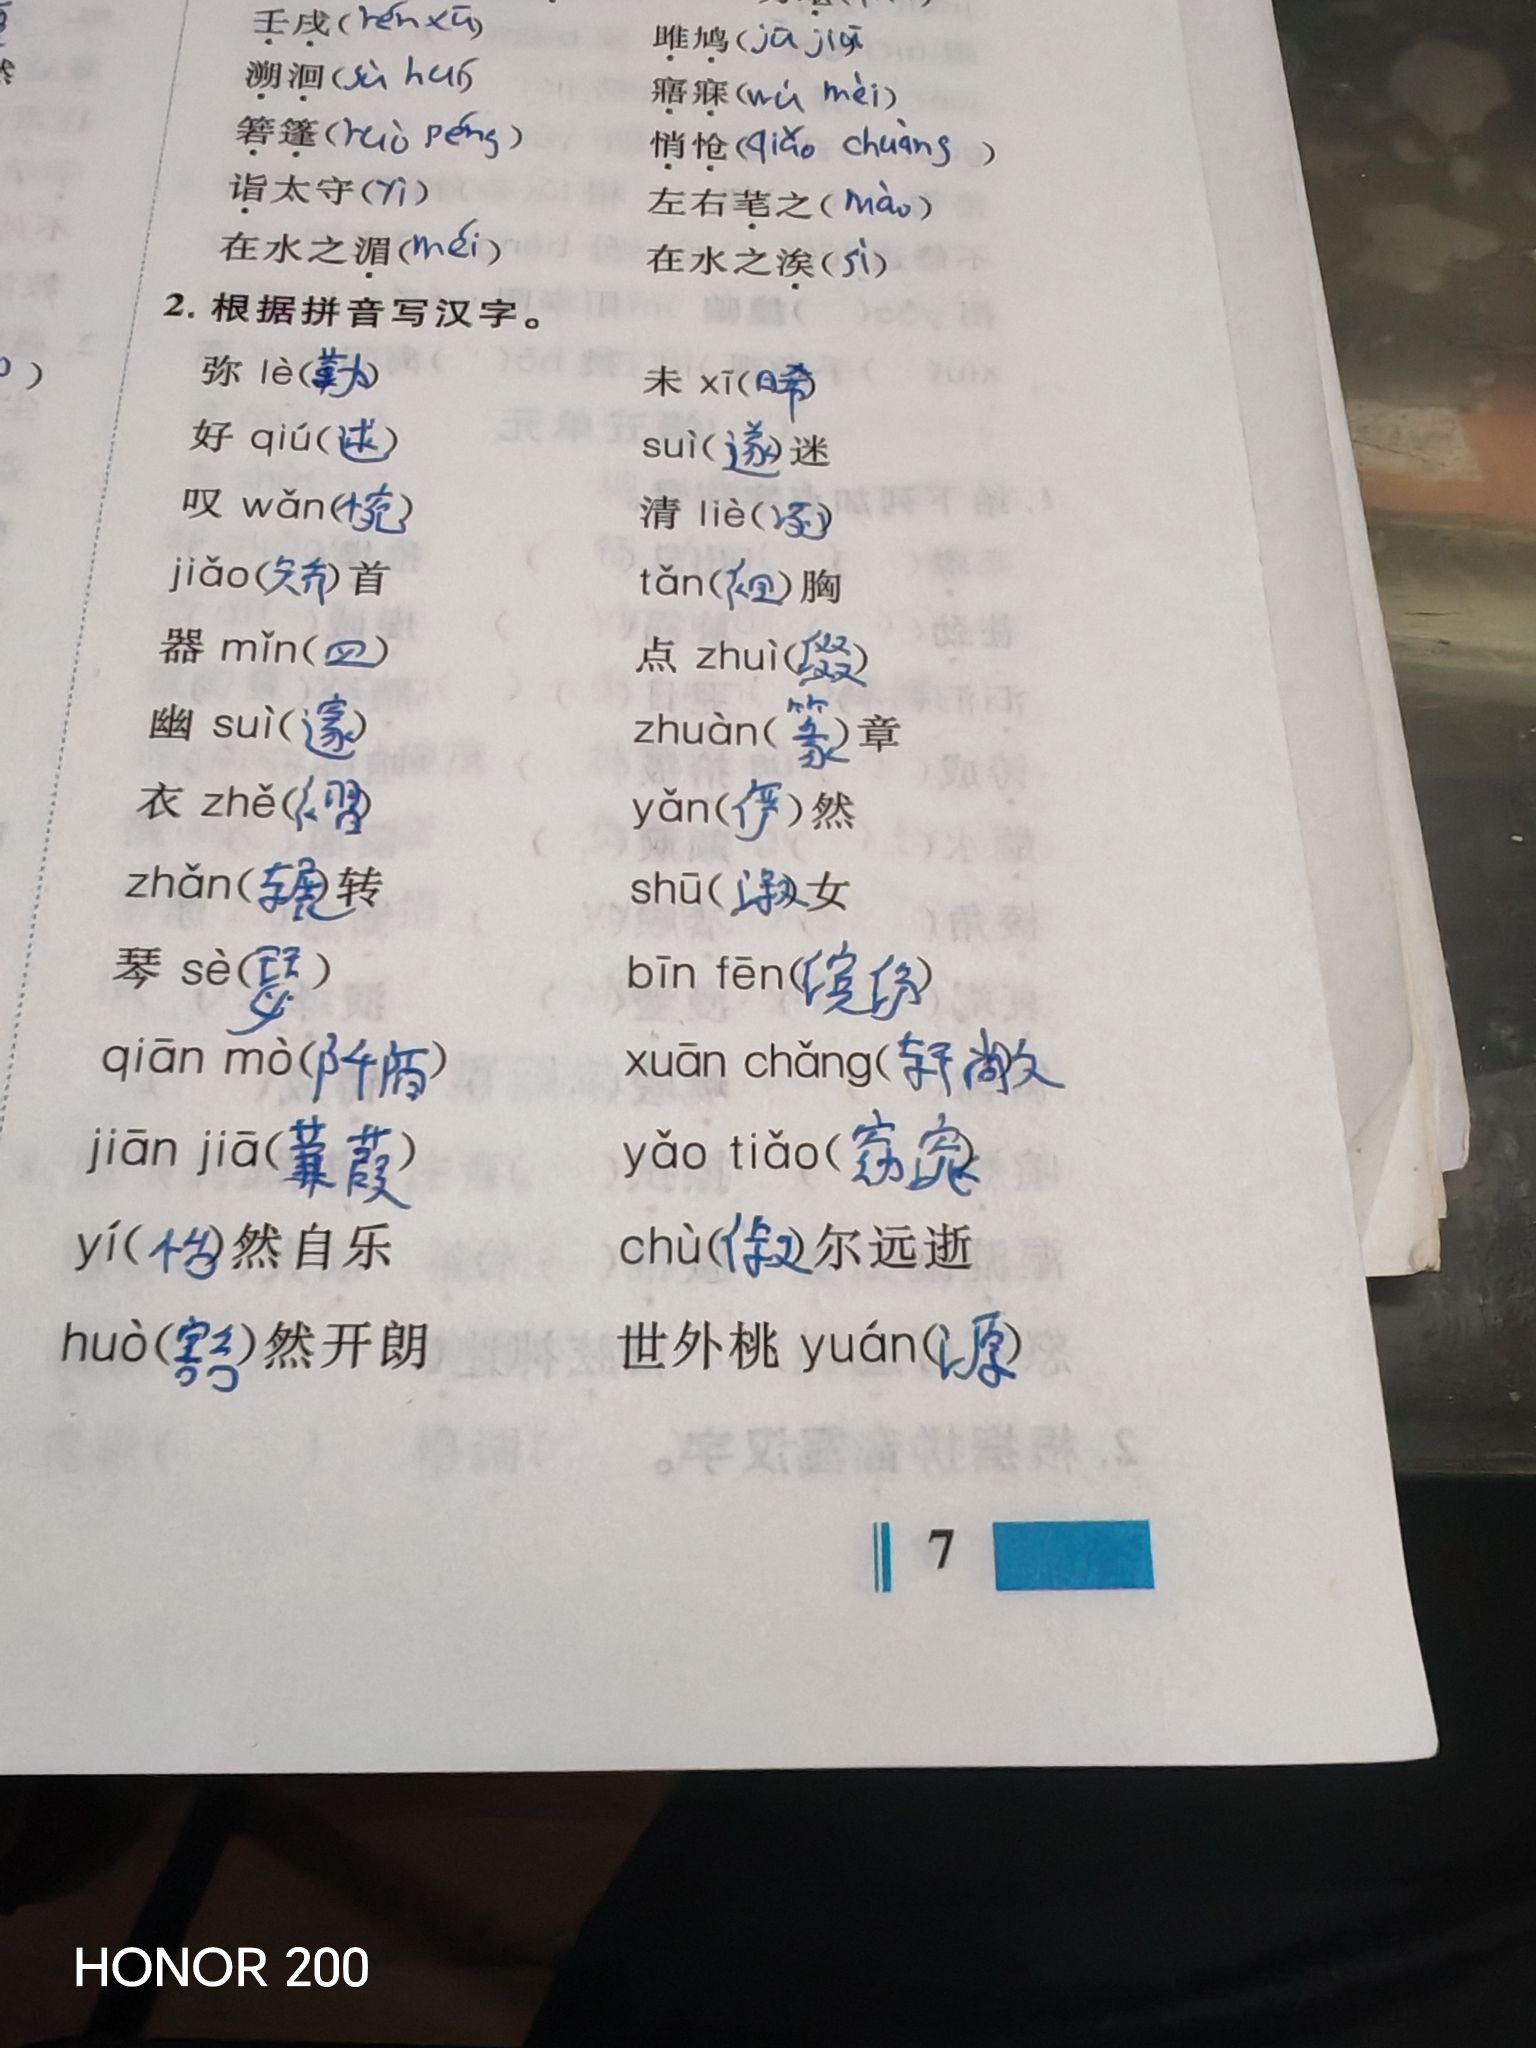 壬戌(rén xū) 雎鸠(jū jiū
溯洄(sù huí) 寤寐(wù mèi)
箬篷(ruò péng) 悄怆(qiǎo chuàng)
诣太守(yì) 左右芼之(mào)
在水之湄(méi) 在水之涘(sì)
2. 根据拼音写汉字。
弥 lè(勒) 未 xī(晞)
好 qiú(逑) suì(邃)迷
叹 wǎn(惋) 清 liè(冽)
jiǎo(矫)首 tǎn(袒)胸
器 mǐn(皿) 点 zhuì(缀)
幽 suì(邃) zhuàn(篆)章
衣 zhě(褶) yǎn(俨)然
zhǎn(辗)转 shū(淑)女
琴 sè(瑟) bīn fēn(缤纷)
qiān mò(阡陌) xuān chǎng(轩敞
jiān jiā(蒹葭) yǎo tiǎo(窈窕)
yí(怡)然自乐 chù(俶)尔远逝
huò(豁)然开朗 世外桃 yuán(源)
7
HONOR 200